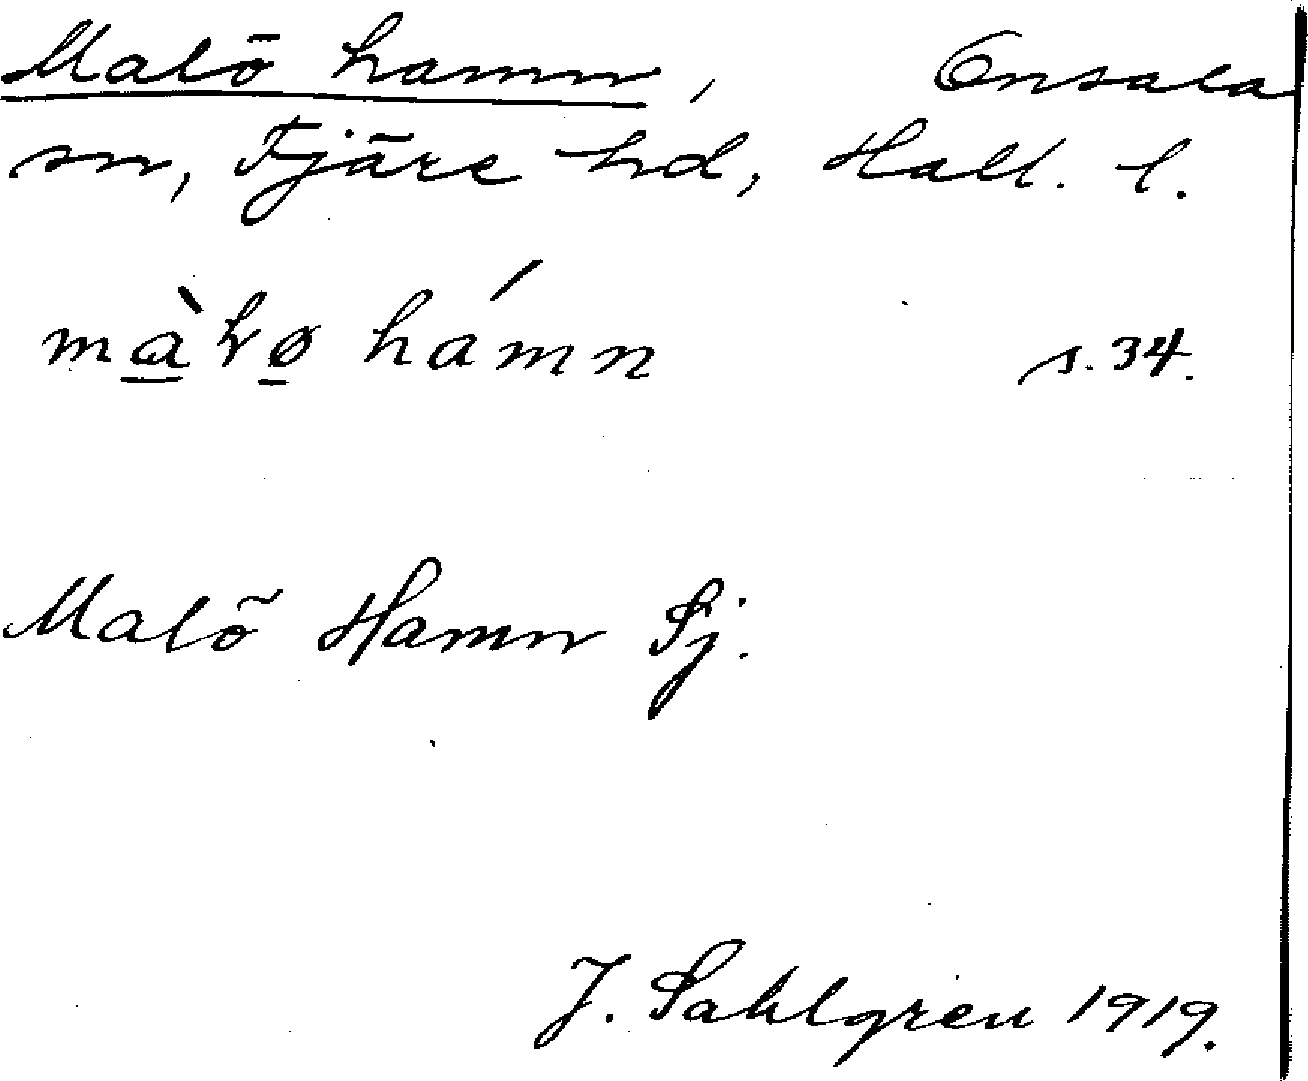 Malö hamn, Onsala
sn, Fjäre hd, Hall. l.
hámn s.34.
Malö Hamn Sj.
J. Sahlgren 1919.